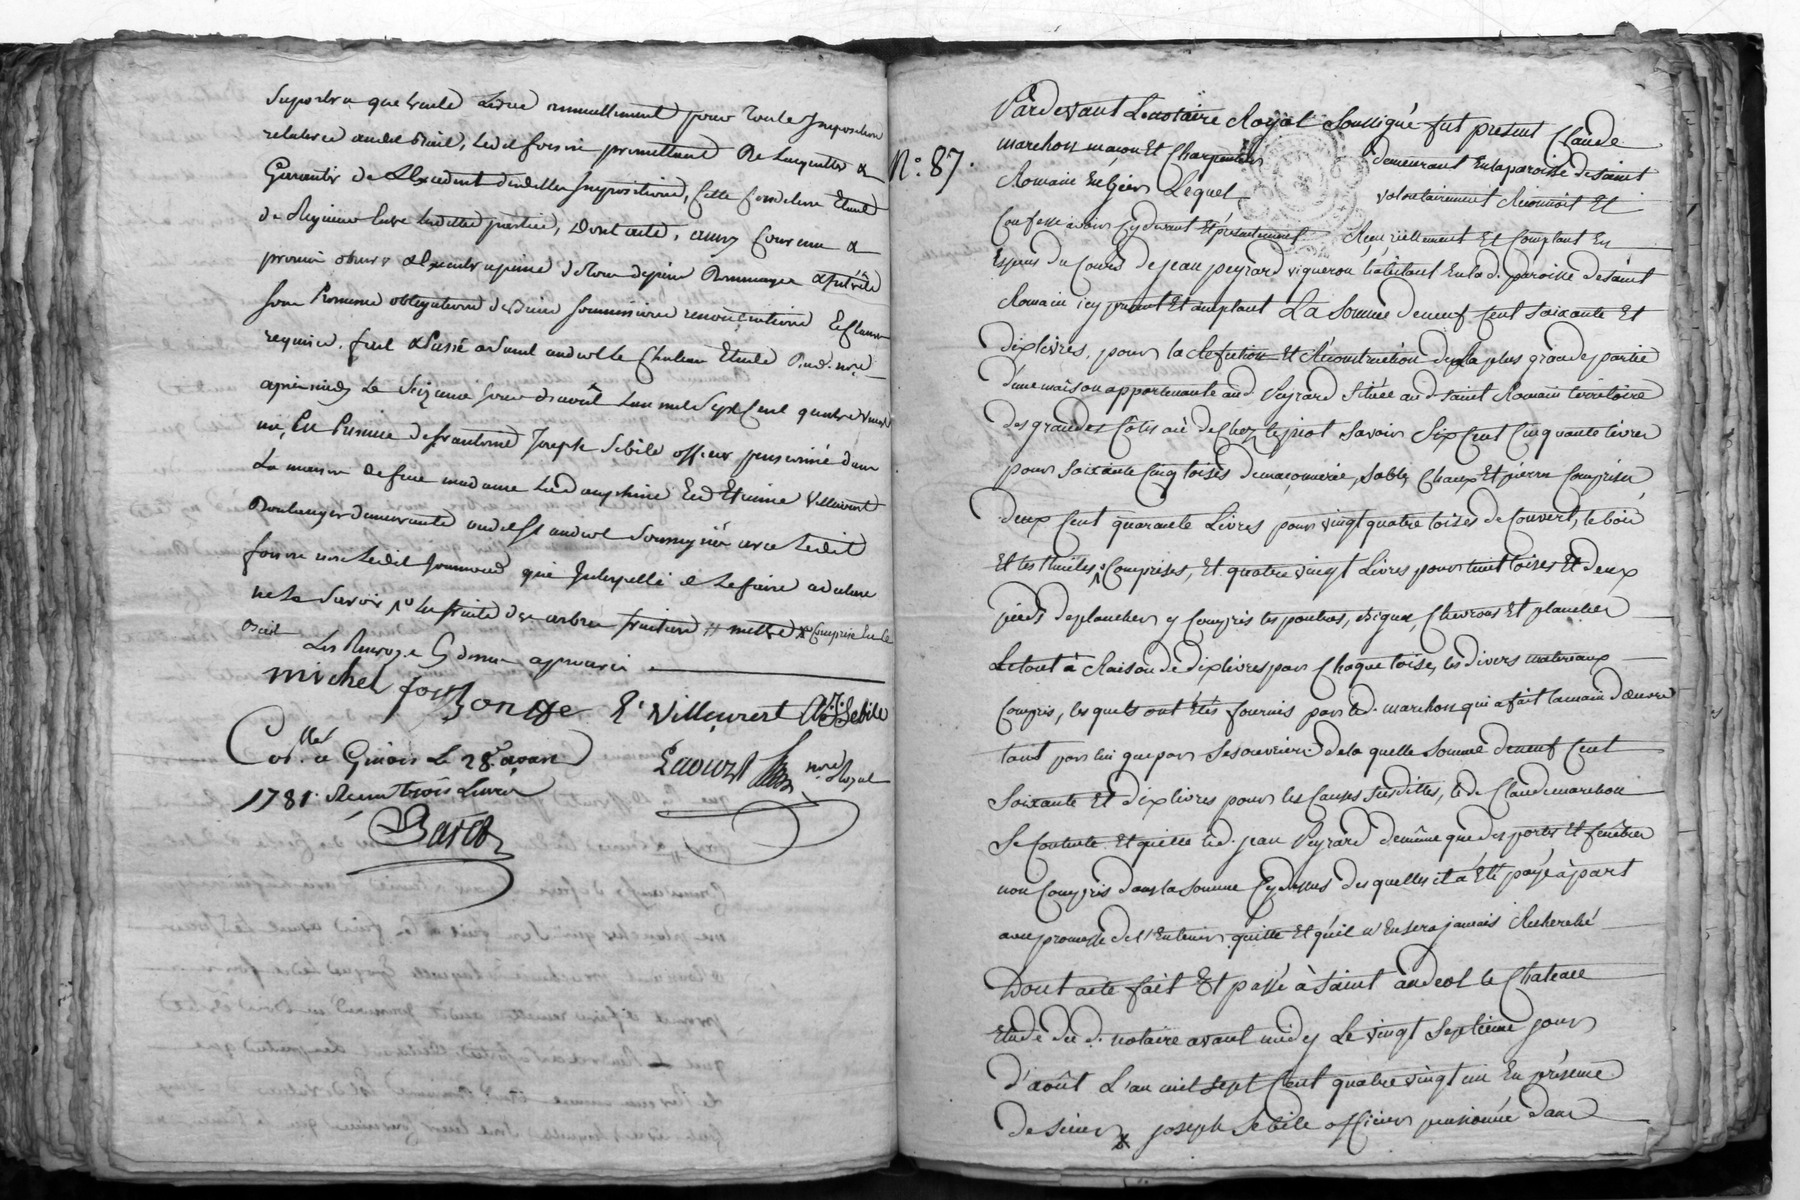 Suportera que ledit annuellement pour toute Imposition
relative audit Bail, ledit promettant De &
Garantir de L'Excedent desdittes Impositions, Cette Condition Etant
de Rigueur Entre lesdittes parties, Dont acte, ainsy Convenu &
promis observer & Executer apeine de tous depens Dommages &
sous Promesse obligations de Biens soumissions renonciations Et Clauses
requises. fait & Passé a Saint andeol le Chateau Etude Dud. nore.
apres midy Le Seizieme jour d'août L'an mil Sept Cent quatre vingt
un, En Presence de sr antoine Joseph Sebile officier pensionné dans
La maison de feue madame La Dauphine Et d Etienne Villeurert
Boulanger demeurants aud. St andeol Soussignés avec Ledit
non Ledit qui Interpellé de Le faire a declaré
ne Le Savoir les fruits des arbres fruitiers Compris En Le
Bail
Les Renvoys Cy dessus approuvés
michel
E. Villeurert A. J. Sebile
Collé. a Givors Le 28. aoust
1781. Reçu trois Livres
nore. Royal
Baret
N.° 87.
Pardevant Le notaire Royal Soussigné fut présent Claude
marchon maçon Et Charpentier demeurant En la paroisse de saint
Romain En gier Lequel volontairement Reconnoit Et
Confesse avoir Cydevant Et présentement Reçu réellement Et Comptant En
Especes du Cours de Jean peyrard vigneron habitant En lad. paroisse de saint
Romain icy present Et acceptant La Somme de neuf Cent soixante Et
dix livres, pour la Refection Et Réconstruction de la plus grande partie
d'une maison appartenante aud. Peyrard Située aud. saint Romain térritoire
des grandes Cotes ou de Chez le piot savoir Six Cent Cinquante livres
pour soixante Cinq toises de maçonnerie, sable, Chaux Et pierre Comprises,
deux Cent quarante Livres pour vingt quatre toises de Couvert, le bois
Et les thuiles Comprises, Et quatre vingt Livres pour huit toises Et deux
pieds de plancher y Compris les poutres, Chevrons Et plancher
Le tout à Raison de dix livres par Chaque toise, les divers materiaux
Compris, les quels ont étés fournis par led. marchon qui a fait la main d'oeuvre
tant par lui que par ses ouvriers. de la quelle somme de neuf Cent
Soixante Et dix livres pour les Causes Susdittes, led. Claude marchon
Se Contente Et quitte led. jean Peyrard de même que des portes Et fenêtres
non Compris dans la somme Cydessus des quelles il a été payé à part
avec promesse de l'Entenir quitte Et qu'il n'En sera jamais Recherché
Dont acte fait Et passé à Saint andeol le Chateau
Etude du d. notaire avant midy Le vingt Septieme jour
d'août L'an mil sept Cent quatre vingt un En présence
de sieur Joseph Sebile officier pensionné dans